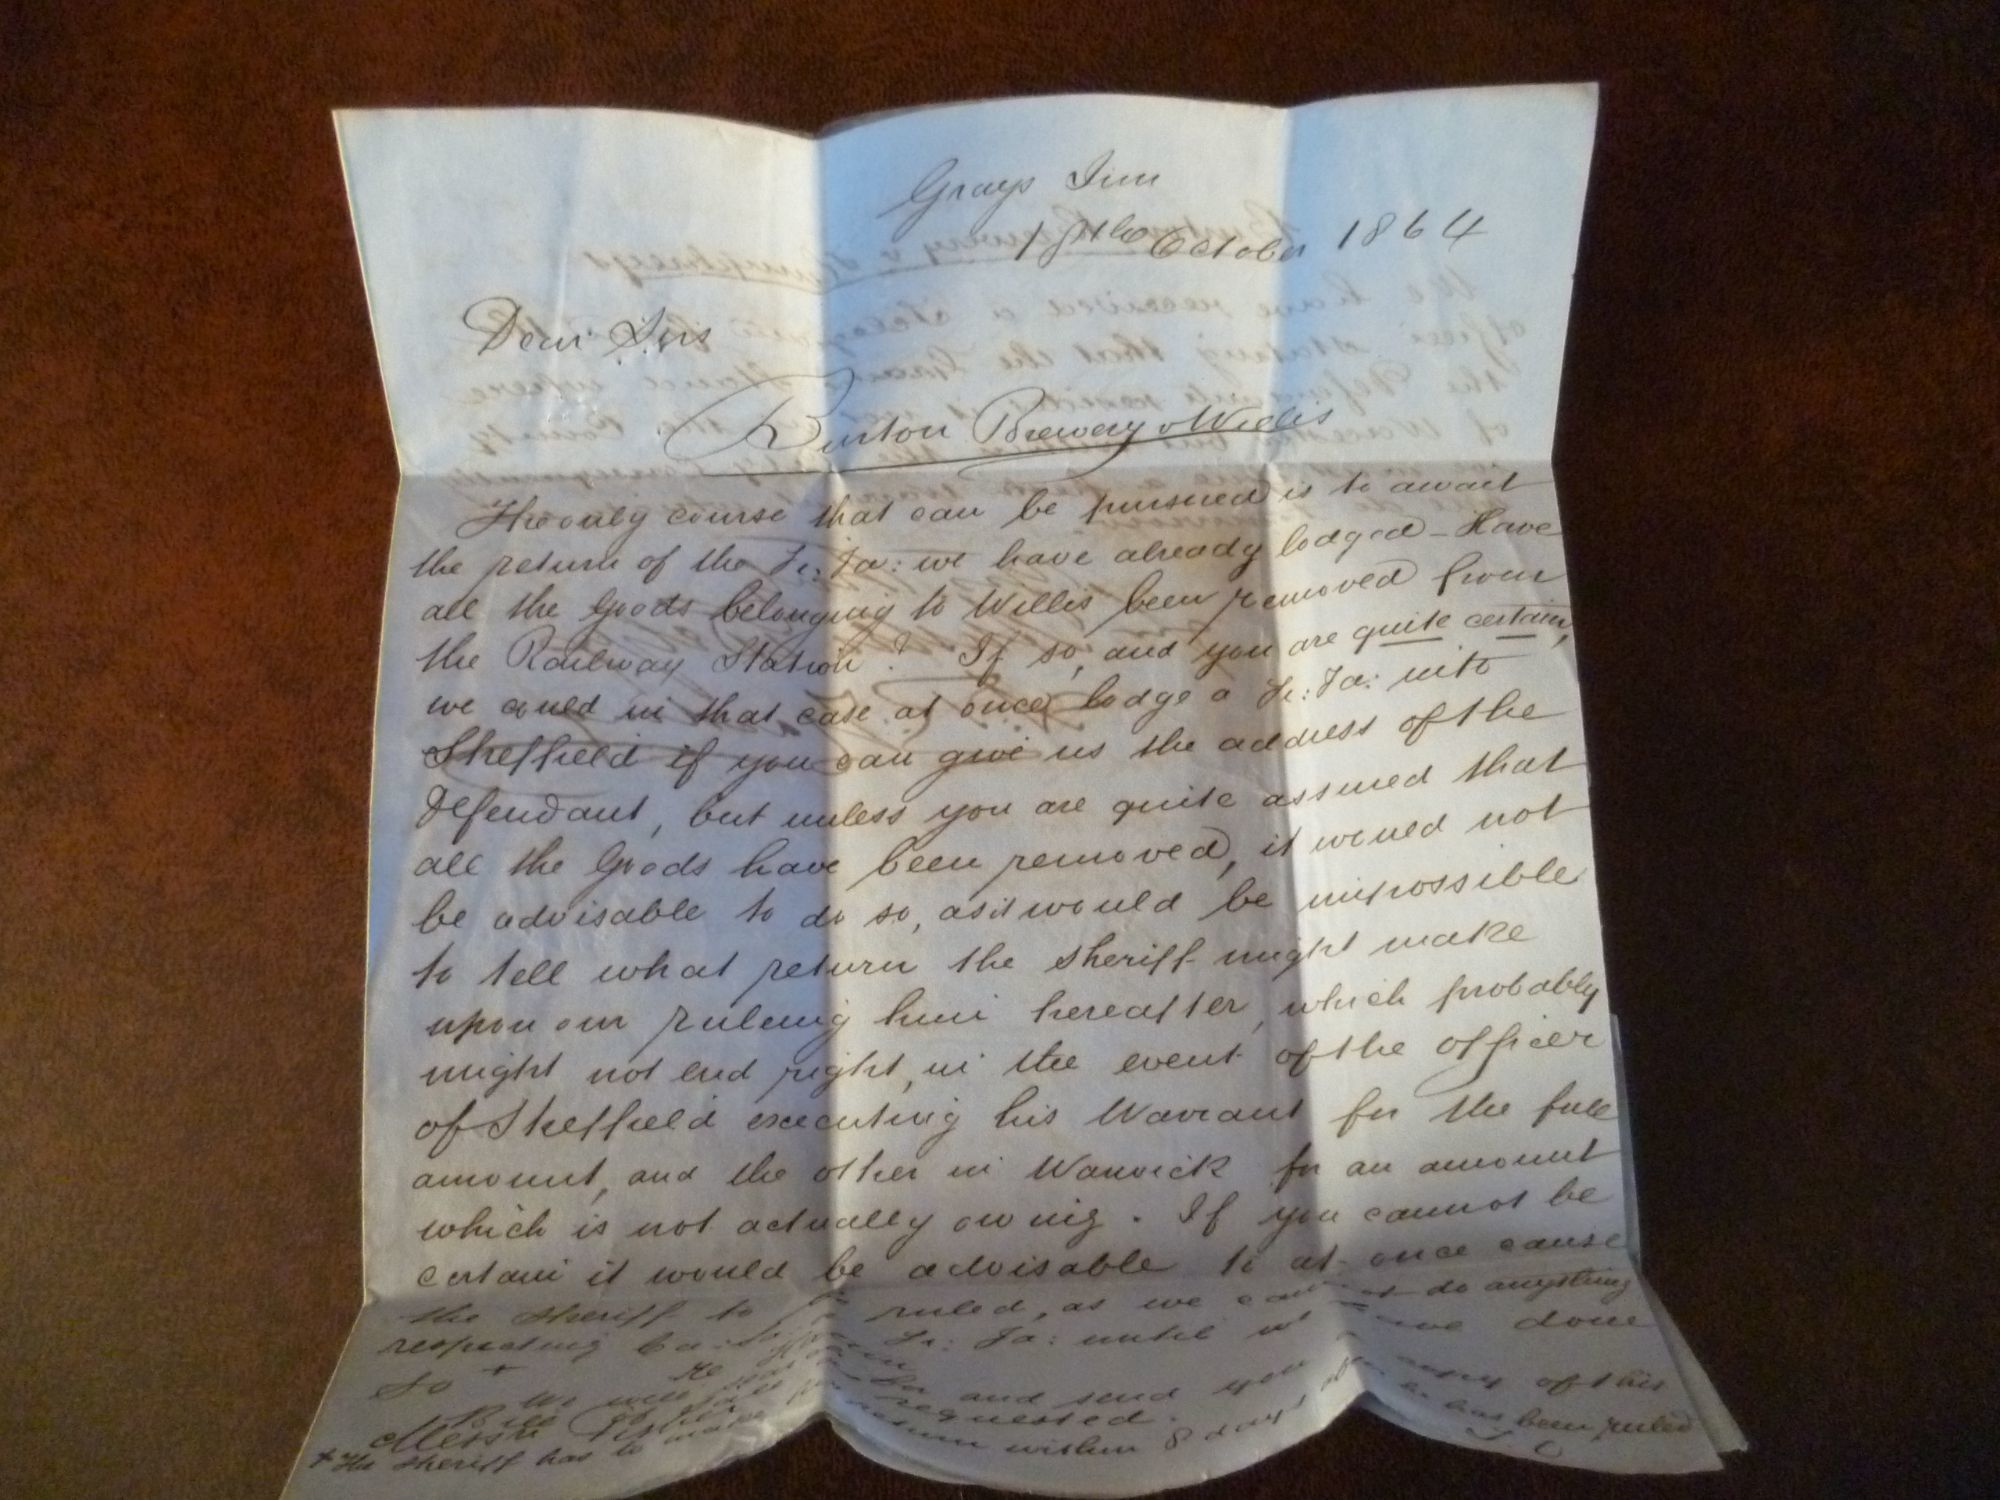 Grays Inn
18th October 1864
Dear Sirs
Burton Brewery v Willis
The only course that can be pursued is to await
the return of the Fi: Fa: we have already lodged - Have
all the Goods belonging to Willis been removed from
the Railway Station? If so, and you are quite certain,
we could in that case at once lodge a Fi: Fa: into
Sheffield if you can give us the address of the
Defendant, but unless you are quite assured that
all the Goods have been removed, it would not
be advisable to do so, as it would be impossible
to tell what return the Sheriff might make
upon our ruling him hereafter, which probably
might not end right, in the event of the officer
of Sheffield executing his Warrant for the full
amount, and the other in Warwick for an amount
which is not actually owing. If you cannot be
certain it would be advisable to at once cause
the Sheriff to be ruled, as we cannot do anything
respecting Fi: Fa: until we have done
so +
We will and send you copy of this
Bill requested.
Messrs
+ The Sheriff has to make return within 8 days he has been ruled